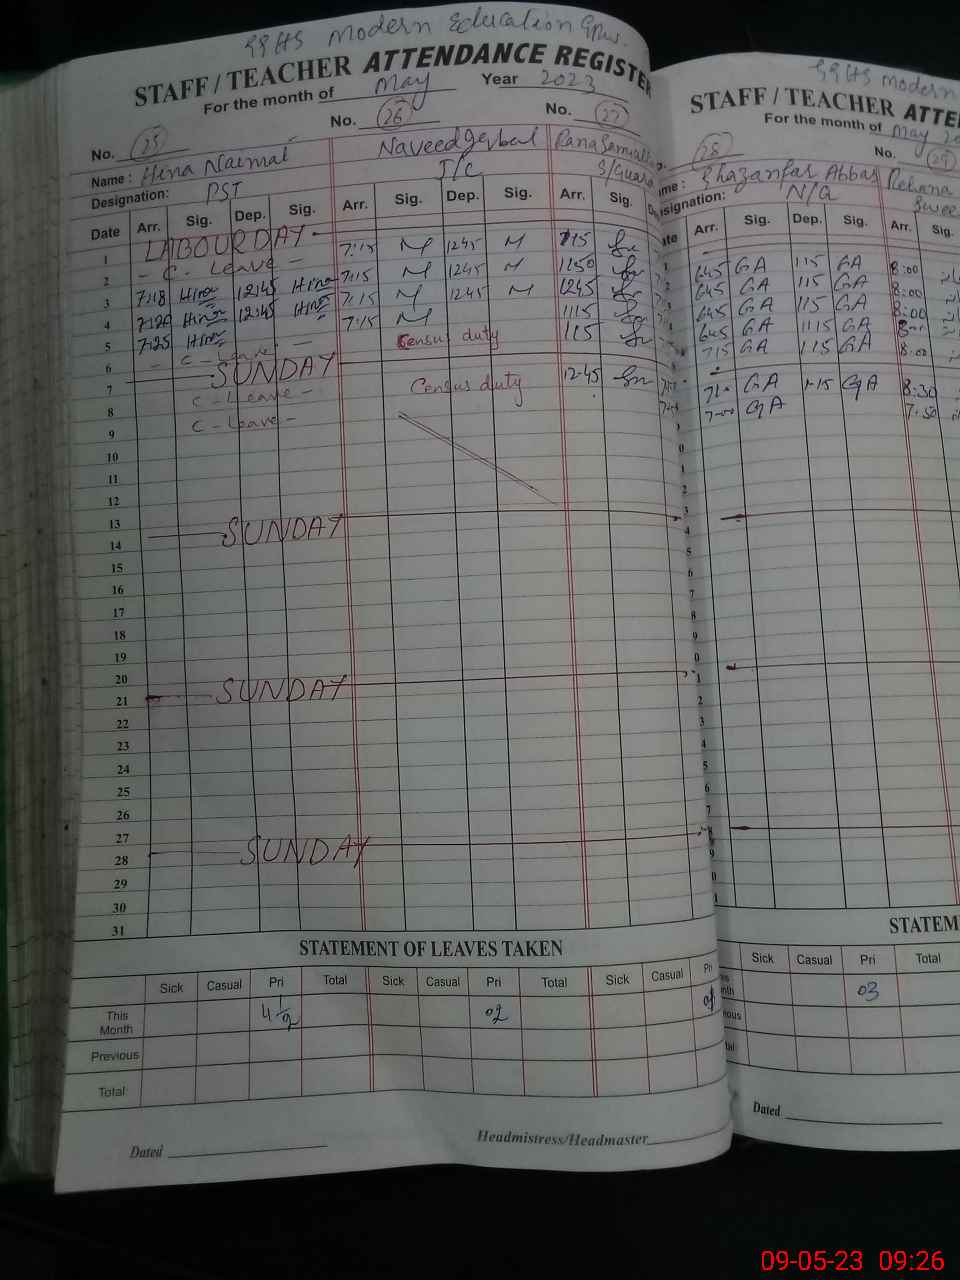 GGHS Modern Education
STAFF / TEACHER ATTENDANCE REGISTER
For the month of May Year 2023
No. 25 No. 26 No. 27
Name : Hina Naimat Naveed
Designation: PST J/C S/Guard
Date Arr. Sig. Dep. Sig. Arr. Sig. Dep. Sig. Arr. Sig.
1 LABOUR DAY
2 - C. Leave - 7:15 M 1245 M 715
3 7:18 Hina 12:45 Hina 7:15 M 1245 M 1150
4 7:20 Hina 12:45 Hina 7:15 M 1245 M 1245
5 7:25 Hina 7:15 M 1115
6 - C - Leave - Census duty 115
7 SUNDAY
8 C - Leave - Census duty 12:45
9 C - Leave -
10
11
12
13
14 SUNDAY
15
16
17
18
19
20
21 SUNDAY
22
23
24
25
26
27
28 SUNDAY
29
30
31
STATEMENT OF LEAVES TAKEN
Sick Casual Pri Total Sick Casual Pri Total Sick Casual Pri
This Month 4 1/2 02
Previous
Total
Dated Headmistress/Headmaster
GGHS Modern
STAFF / TEACHER ATTE
For the month of May
28 No. 29
Ghazanfar Abbas Rehana
signation: N/Q
Arr. Sig. Dep. Sig. Arr. Sig.
645 GA 115 GA 8:00
645 GA 115 GA 8:00
645 GA 115 GA 8:00
645 GA 1115 GA
715 GA 115 GA 8:00
GA 1-15 GA 8:30
7:00 GA 7:50
STATEM
Sick Casual Pri Total
03
Dated
09-05-23 09:26